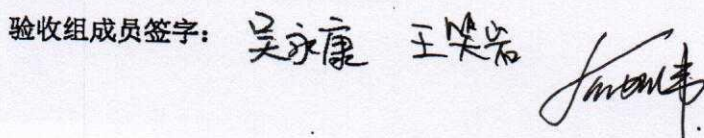 验收组成员签字： 吴永康 王笑岩